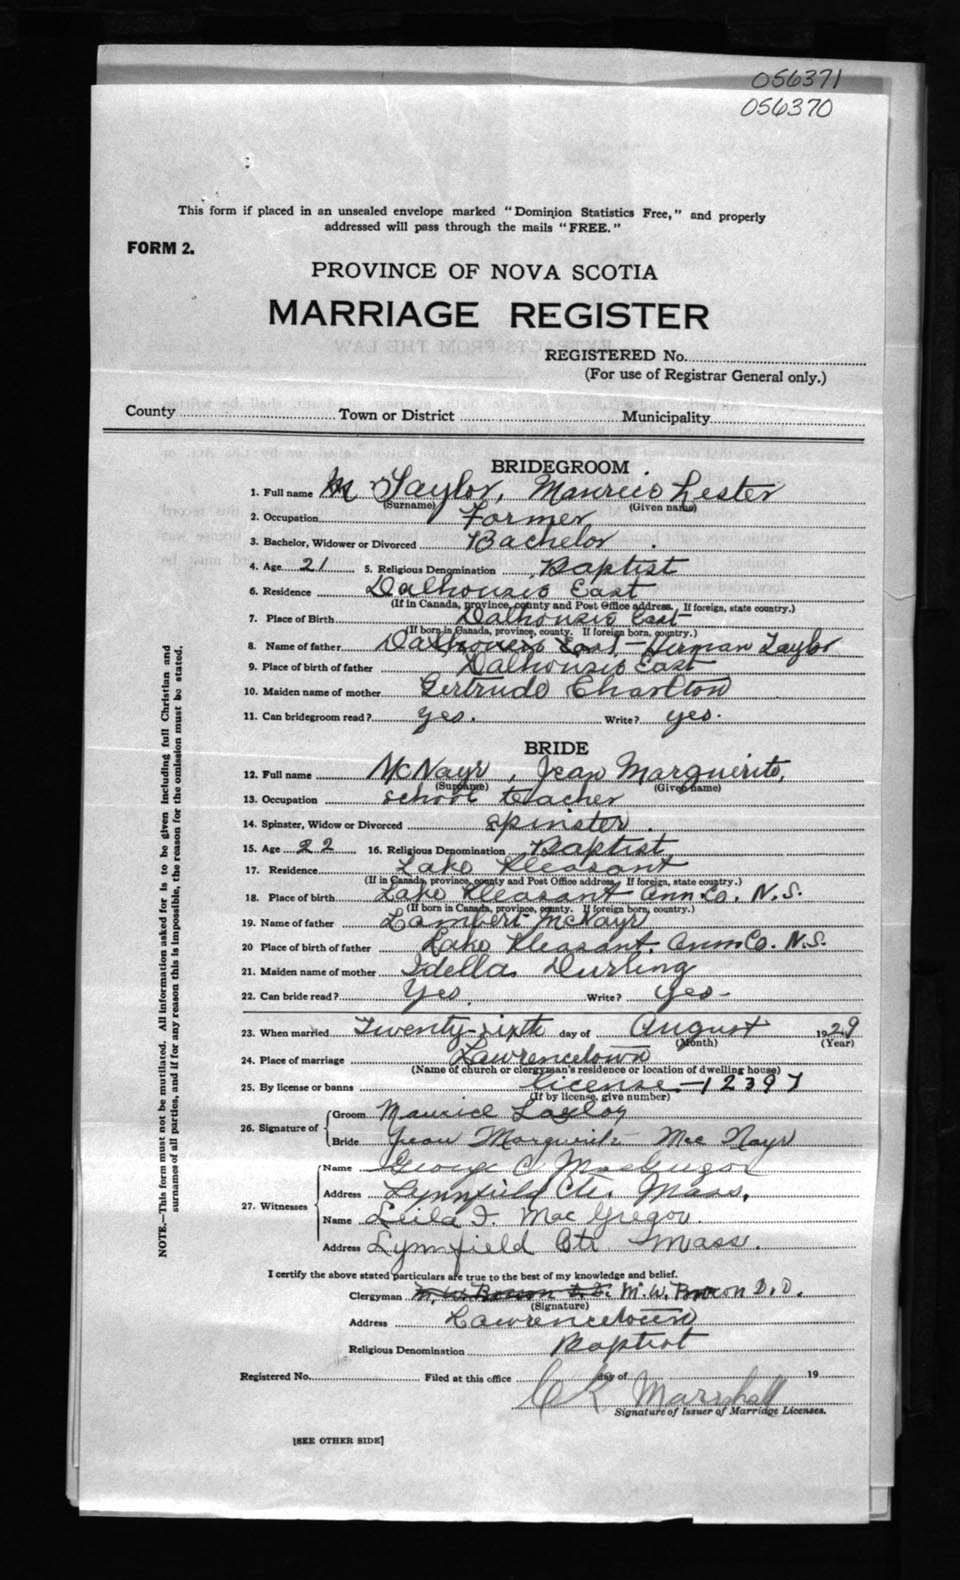 056371
056370
This form if placed in an unsealed envelope marked "Dominion Statistics Free," and properly
addressed will pass through the mails "FREE."
FORM 2.
PROVINCE OF NOVA SCOTIA
MARRIAGE REGISTER
REGISTERED No.
(For use of Registrar General only.)
County Town or District Municipality
BRIDEGROOM
1. Full name Taylor, Maurice Lester
(Surname) (Given name)
2. Occupation Farmer
3. Bachelor, Widower or Divorced Bachelor
4. Age 21 5. Religious Denomination Baptist
6. Residence Dalhousie East
(If in Canada, province, county and Post Office address. If foreign, state country.)
7. Place of Birth Dalhousie East
(If born in Canada, province, county. If foreign born, country.)
8. Name of father Dalhousie East, Herman Taylor
9. Place of birth of father Dalhousie East
10. Maiden name of mother Gertrude Charlton
11. Can bridegroom read? yes. Write? yes.
BRIDE
12. Full name McNayr, Jean Marguerite,
(Surname) (Given name)
13. Occupation school teacher
14. Spinster, Widow or Divorced spinster.
15. Age 22 16. Religious Denomination Baptist
17. Residence Lake Pleasant
(If in Canada, province, county and Post Office address. If foreign, state country.)
18. Place of birth Lake Pleasant Ann Co. N.S.
(If born in Canada, province, county. If foreign born, country.)
19. Name of father Lambert McNayr
20 Place of birth of father Lake Pleasant, Ann Co. N.S.
21. Maiden name of mother Idella Durling
22. Can bride read? Yes. Write? yes-
23. When married Twenty-sixth day of August 1929
(Month) (Year)
24. Place of marriage Lawrencetown
(Name of church or clergyman's residence or location of dwelling house)
25. By license or banns license-12397
(If by license, give number)
26. Signature of
Groom Maurice Taylor
Bride Jean Marguerite MacNayr
27. Witnesses
Name George C. MacGregor
Address Lynnfield Ctr. Mass.
Name Leila I. MacGregor.
Address Lynnfield Ctr Mass.
I certify the above stated particulars are true to the best of my knowledge and belief.
Clergyman M. W. D.D.
(Signature)
Address Lawrencetown
Religious Denomination Baptist
Registered No. Filed at this office day of 19
C K Marshall
Signature of Issuer of Marriage Licenses.
[SEE OTHER SIDE]
NOTE.—This form must not be mutilated. All information asked for is to be given including full Christian and
surnames of all parties, and if for any reason this is impossible, the reason for the omission must be stated.